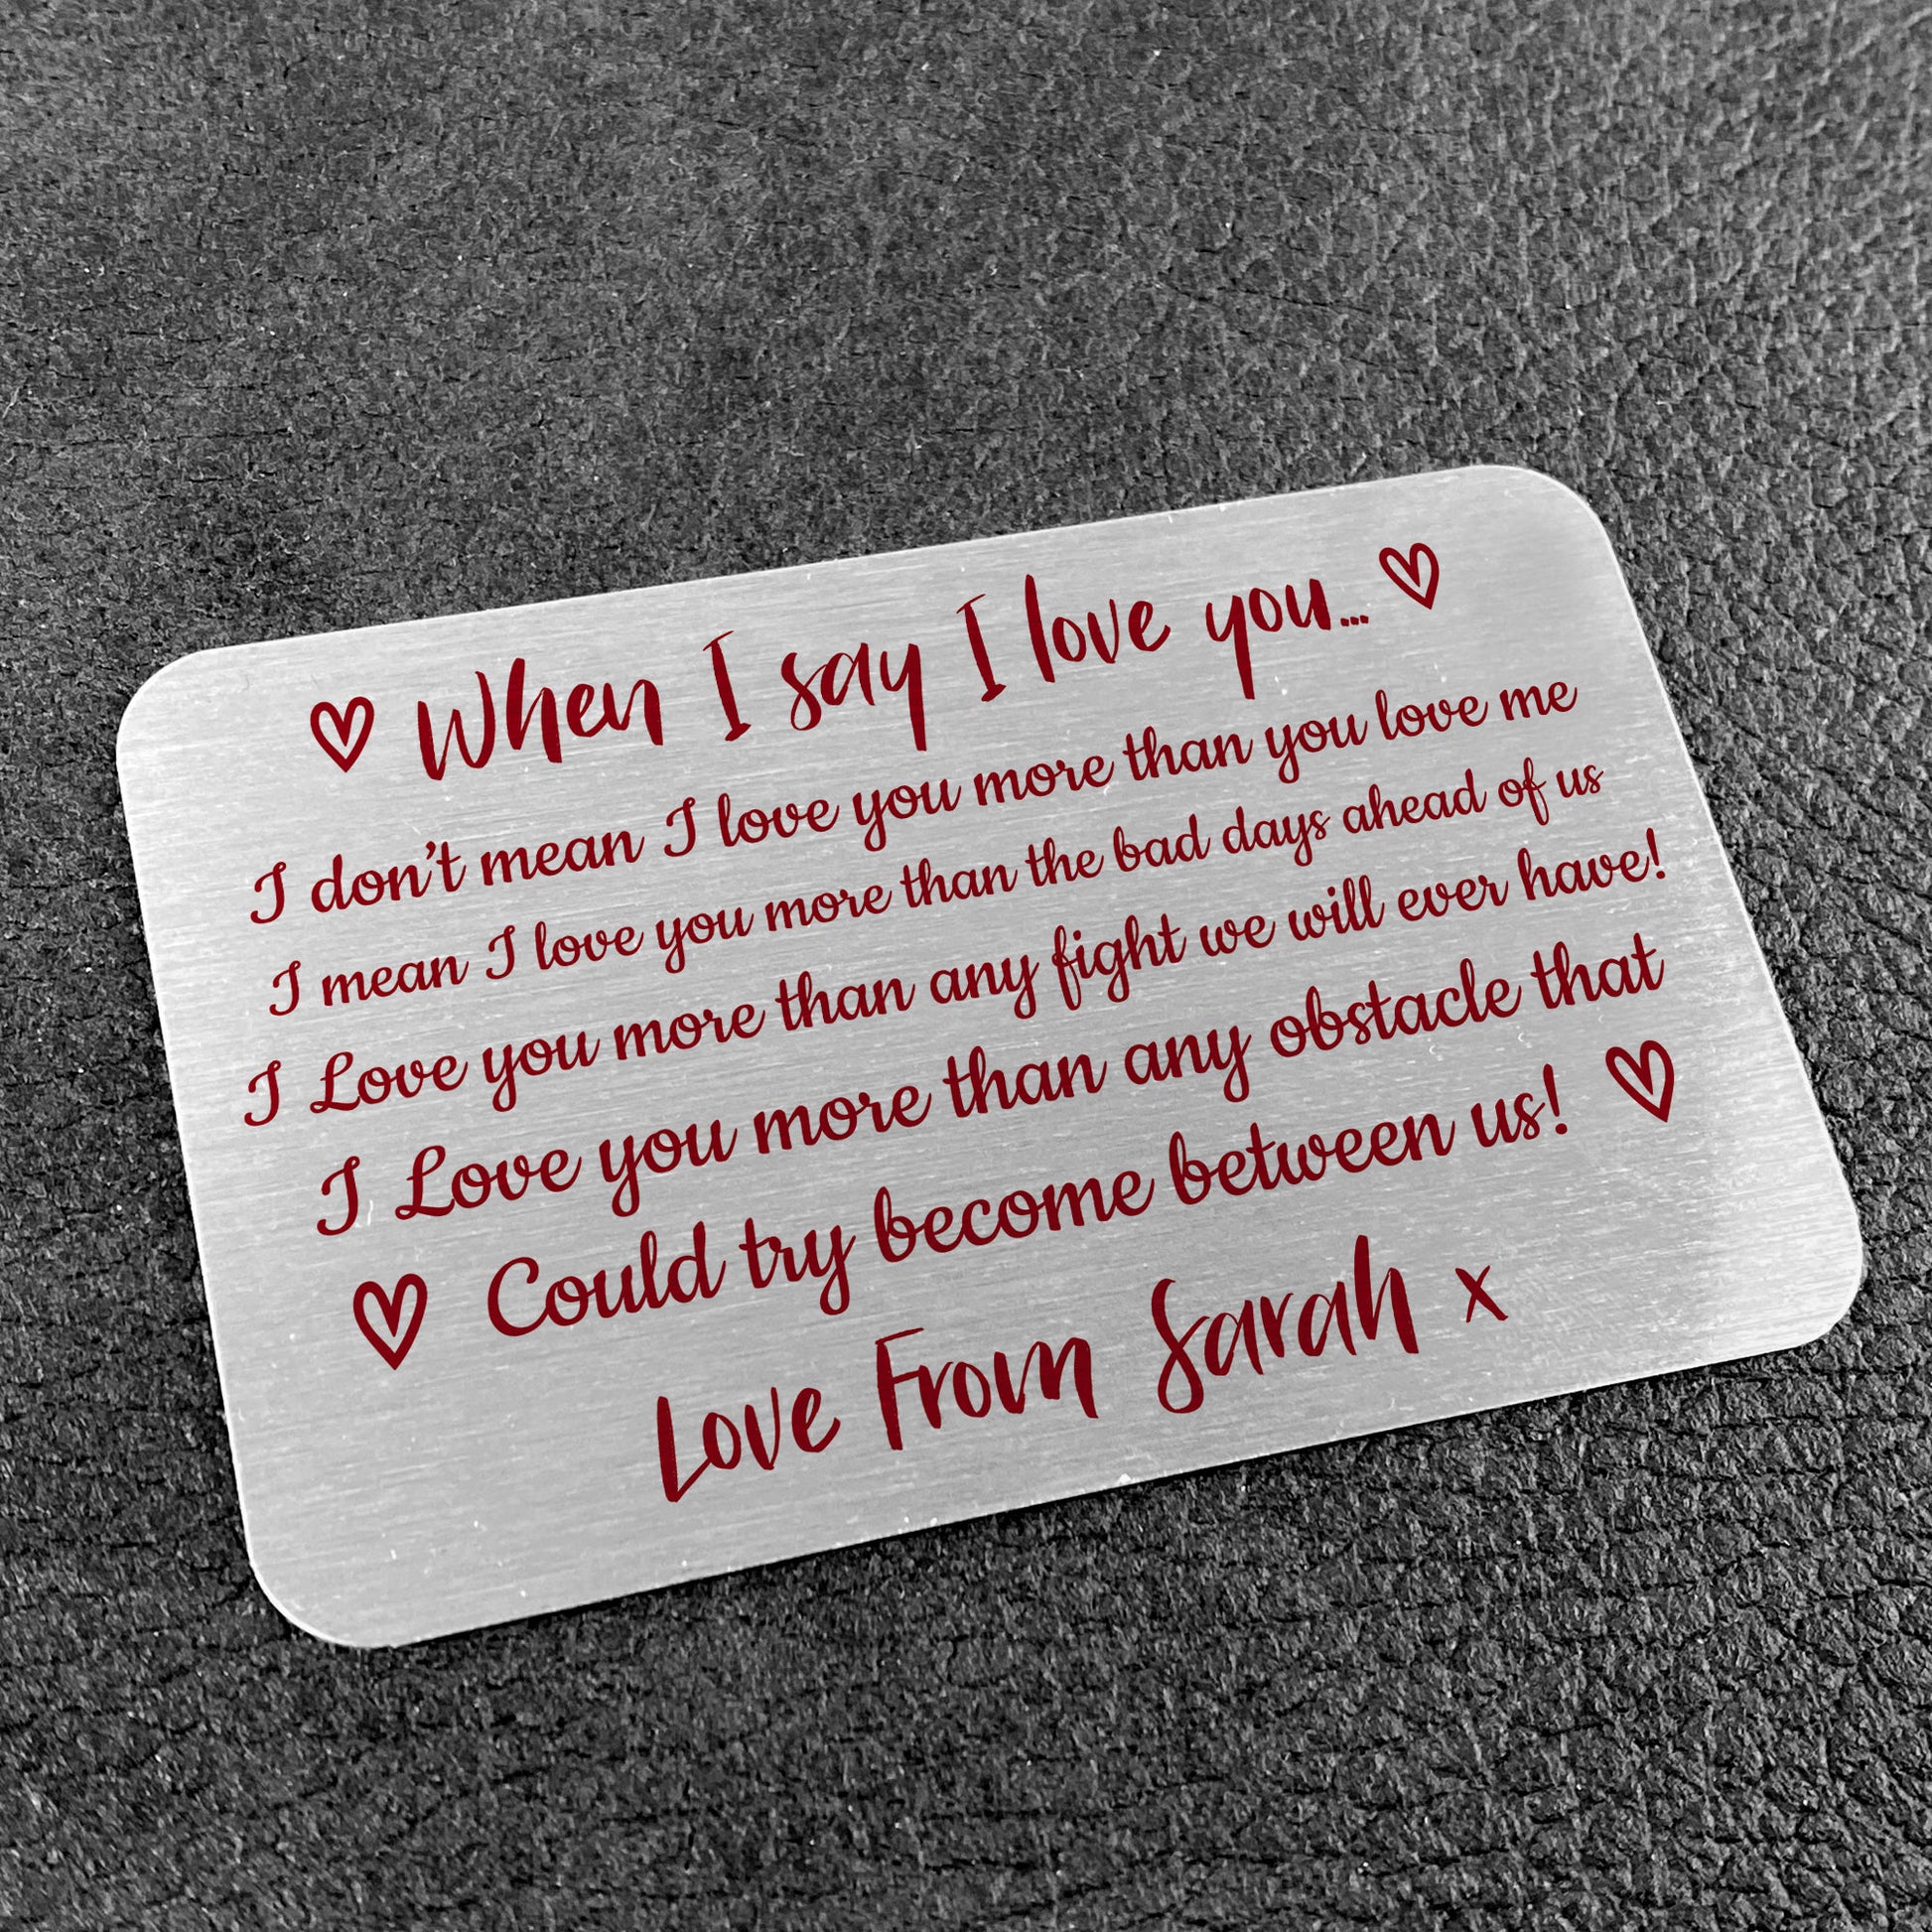 When I say I love you...
I don't mean I love you more than you love me
I mean I love you more than the bad days ahead of us
I Love you more than any fight we will ever have!
I Love you more than any obstacle that
Could try become between us!
Love From Sarah x